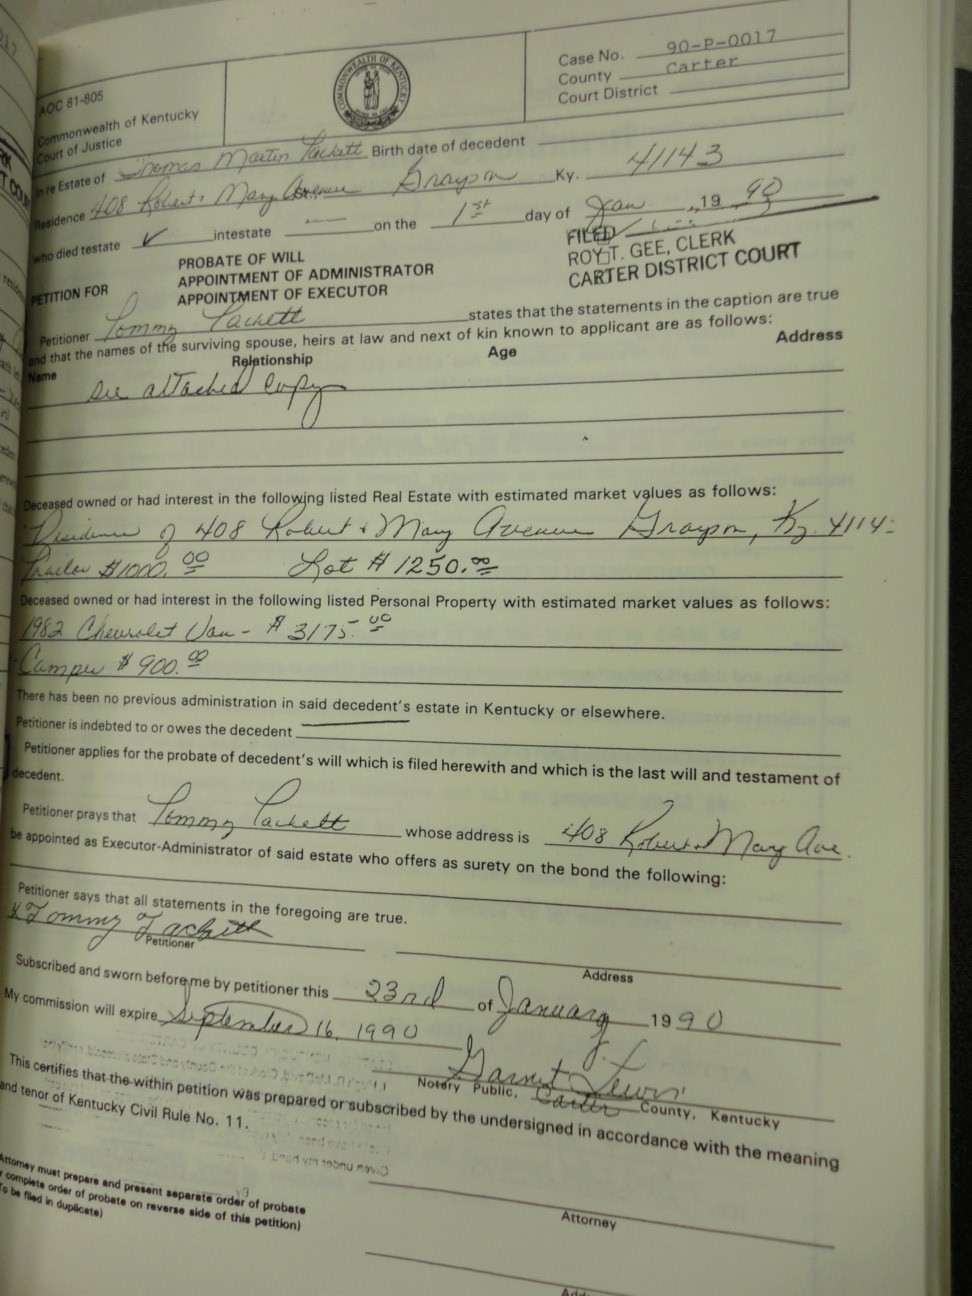 AOC 81-805
Commonwealth of Kentucky
Court of Justice
COMMONWEALTH OF KENTUCKY
Case No. 90-P-0017
County Carter
Court District
In re Estate of Thomas Martin Tackett Birth date of decedent
Residence 408 Robert & Mary Avenue Grayson Ky. 41143
who died testate ✓ intestate — on the 1st day of Jan , 19 90
FILED
ROY T. GEE, CLERK
CARTER DISTRICT COURT
PETITION FOR
PROBATE OF WILL
APPOINTMENT OF ADMINISTRATOR
APPOINTMENT OF EXECUTOR
Petitioner Tommy Tackett states that the statements in the caption are true
and that the names of the surviving spouse, heirs at law and next of kin known to applicant are as follows:
Name Relationship Age Address
see attached copy
Deceased owned or had interest in the following listed Real Estate with estimated market values as follows:
Residence of 408 Robert & Mary Avenue Grayson, Ky. 4114
Trailer $1000.00 Lot $1250.00
Deceased owned or had interest in the following listed Personal Property with estimated market values as follows:
1982 Chevrolet Van - $3175.00
Camper $900.00
There has been no previous administration in said decedent's estate in Kentucky or elsewhere.
Petitioner is indebted to or owes the decedent
Petitioner applies for the probate of decedent's will which is filed herewith and which is the last will and testament of
decedent.
Petitioner prays that Tommy Tackett whose address is 408 Robert & Mary Ave.
be appointed as Executor-Administrator of said estate who offers as surety on the bond the following:
Petitioner says that all statements in the foregoing are true.
x Tommy Tackett
Petitioner
Address
Subscribed and sworn before me by petitioner this 23rd of January 19 90
My commission will expire September 16, 1990
Garnet J. Lewis
Notary Public, Carter County, Kentucky
This certifies that the within petition was prepared or subscribed by the undersigned in accordance with the meaning
and tenor of Kentucky Civil Rule No. 11.
Attorney must prepare and present separate order of probate
complete order of probate on reverse side of this petition)
To be filed in duplicate)
Attorney